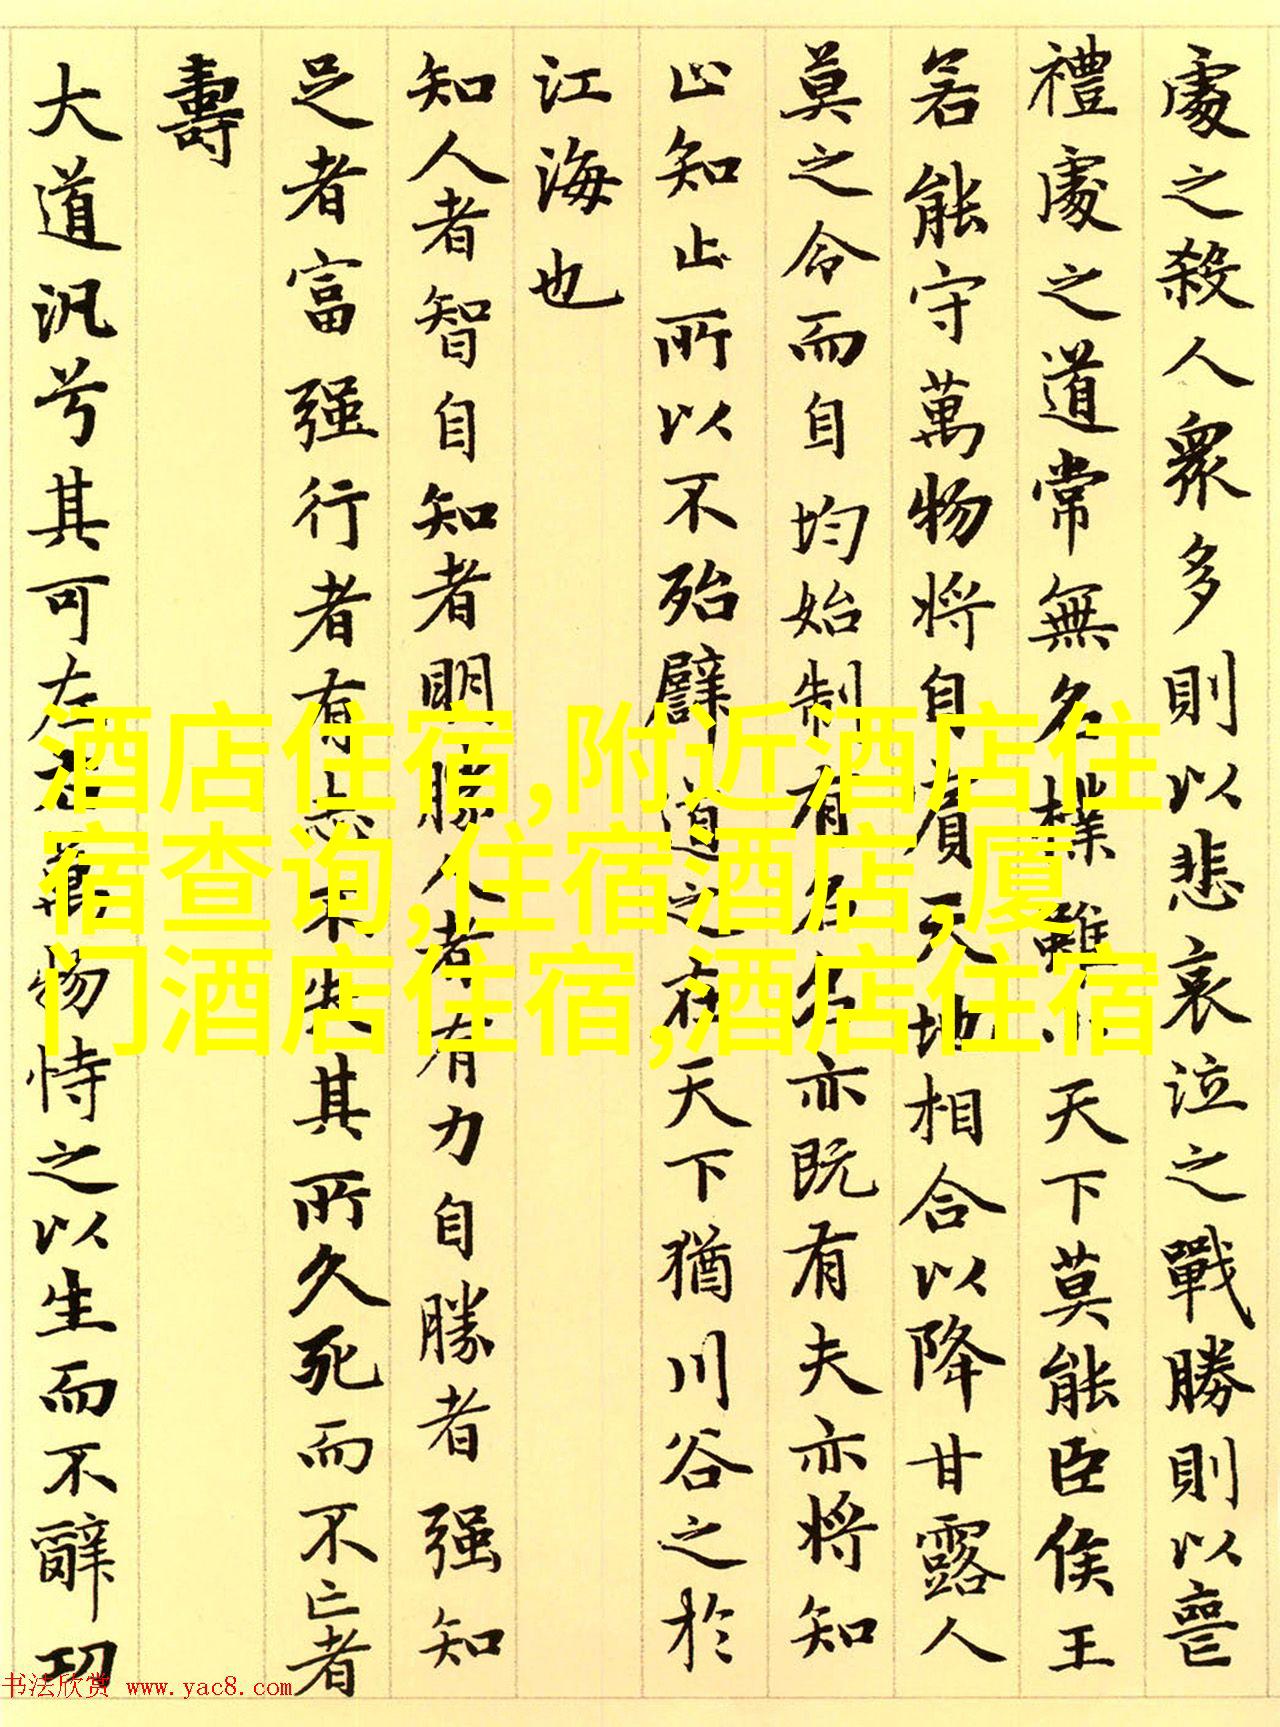 處之殺人衆多則以悲哀泣之戰勝則以喪
禮處之道常無名樸雖小天下莫能臣侯王
若能守萬物將自賓天地相合以降甘露人
莫之令而自均始制有名名亦既有夫亦將知
止知止所以不殆譬道之在天下猶川谷之於
江海也
知人者智自知者明勝人者有力自勝者强知
足者富强行者有志不失其所久死而不亡者
壽
大道汎兮其可左右萬物恃之以生而不辭功
酒店住宿,附近酒店住
宿查询,住宿酒店,厦
门酒店住宿,酒店住宿
书法欣赏 www.yac8.com